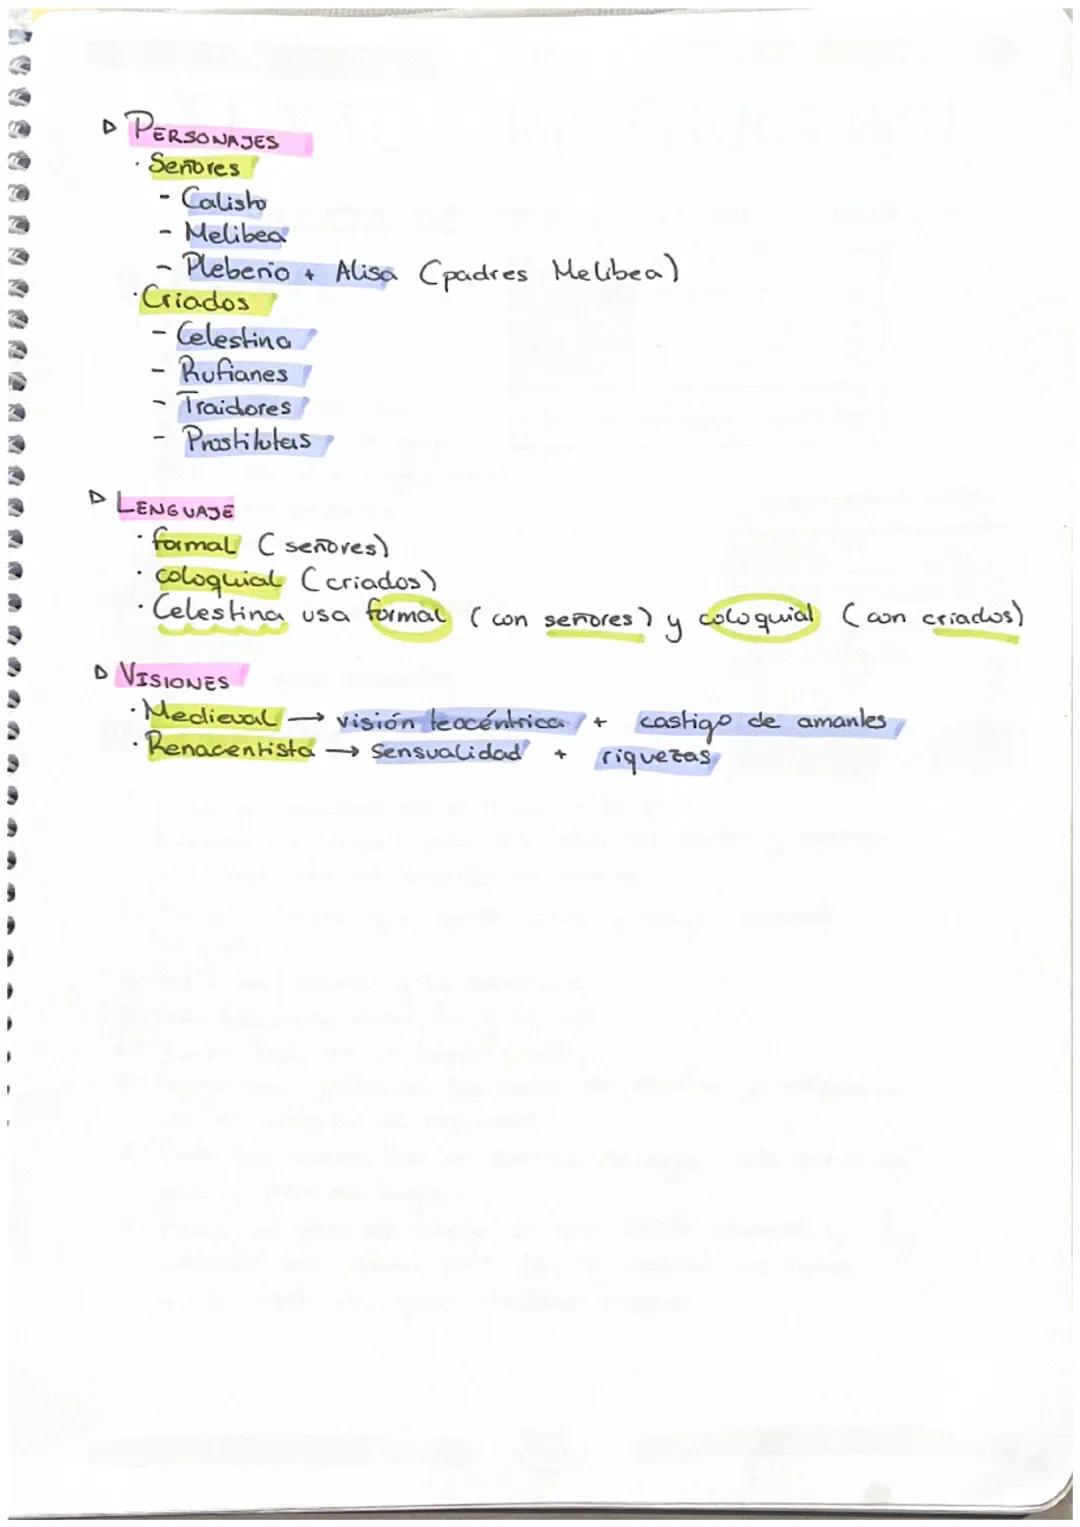 ▷ PERSONAJES
· Señores
- Calisto
- Melibea
- Pleberio + Alisa (padres Melibea)
· Criados
- Celestina
- Rufianes
- Traidores
- Prostitutas
▷ LENGUAJE
· formal (señores)
· coloquial (criados)
· Celestina usa formal (con señores) y coloquial (con criados)
▷ VISIONES
· Medieval → visión teocéntrica + castigo de amantes
· Renacentista → Sensualidad + riquezas